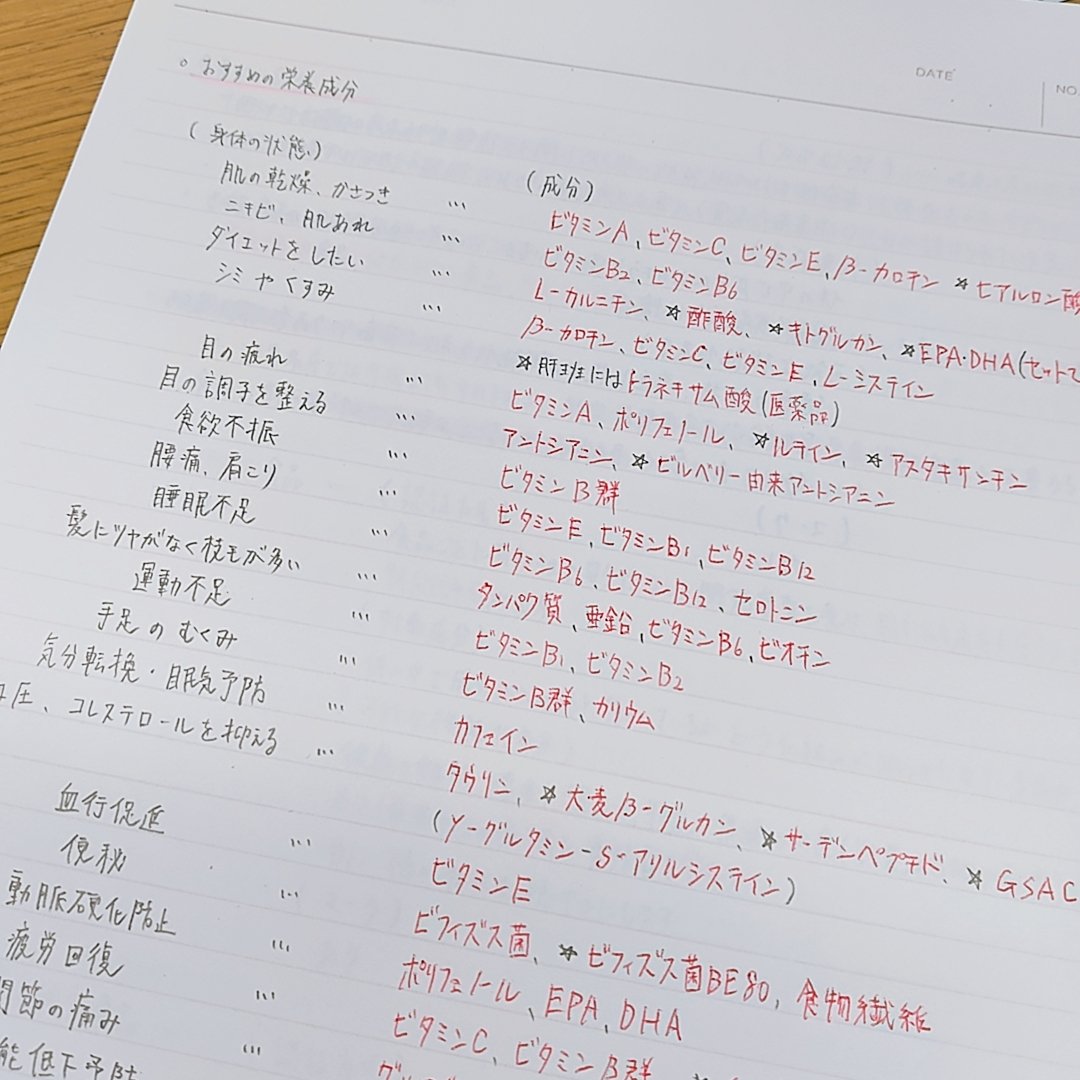 DATE
NO.
。おすすめの栄養成分
(身体の状態) (成分)
肌の乾燥、かさつき … ビタミンA、ビタミンC、ビタミンE、β-カロチン ☆ヒアルロン酸
ニキビ、肌あれ … ビタミンB2、ビタミンB6
ダイエットをしたい … L-カルニチン、☆酢酸、☆キトグルカン、☆EPA・DHA(セットで
シミやくすみ … β-カロチン、ビタミンC、ビタミンE、L-システイン
☆肝斑にはトラネキサム酸(医薬品)
目の疲れ … ビタミンA、ポリフェノール、☆ルテイン、☆アスタキサンチン
目の調子を整える … アントシアニン、☆ビルベリー由来アントシアニン
食欲不振 … ビタミンB群
腰痛、肩こり … ビタミンE、ビタミンB1、ビタミンB12
睡眠不足 … ビタミンB6、ビタミンB12、セロトニン
髪にツヤがなく枝毛が多い … タンパク質、亜鉛、ビタミンB6、ビオチン
運動不足 … ビタミンB1、ビタミンB2
手足のむくみ … ビタミンB群、カリウム
気分転換・眠気予防 … カフェイン
圧、コレステロールを抑える … タウリン、☆大麦β-グルカン、☆サーデンペプチド、☆GSAC
(γ-グルタミン-S-アリルシステイン)
血行促進 … ビタミンE
便秘 … ビフィズス菌、☆ビフィズス菌BE80、食物繊維
動脈硬化防止 … ポリフェノール、EPA、DHA
疲労回復 … ビタミンC、ビタミンB群
節の痛み … グル
能低下予防